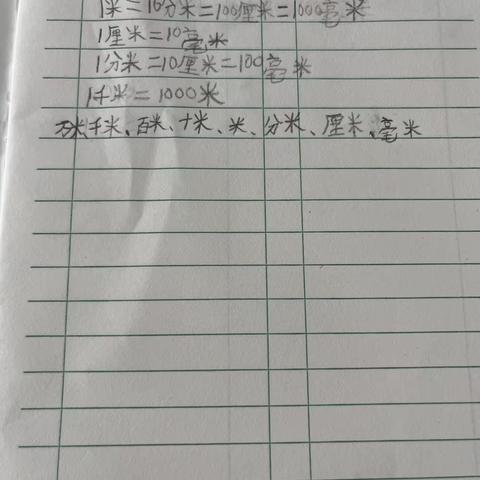 1米=10分米=100厘米=1000毫米
1厘米=10毫米
1分米=10厘米=100毫米
1千米=1000米
万米千米、百米、十米、米、分米、厘米、毫米